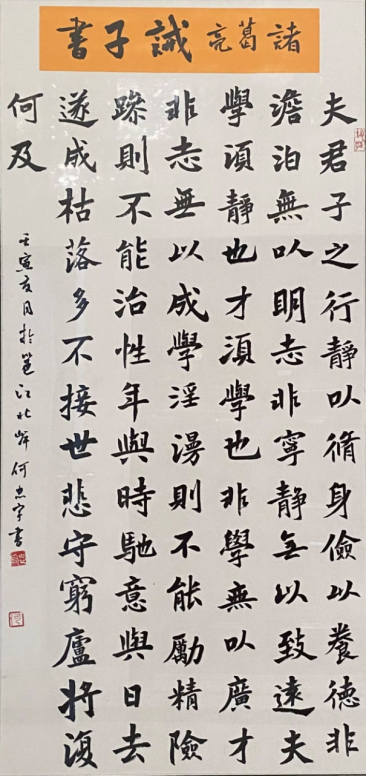 諸葛亮 誡子書
夫君子之行靜以脩身儉以養德非
澹泊無以明志非寧靜無以致遠夫
學須靜也才須學也非學無以廣才
非志無以成學淫漫則不能勵精險
躁則不能治性年與時馳意與日去
遂成枯落多不接世悲守窮廬將復
何及
壬寅亥月於邕江北岸何忠宇書